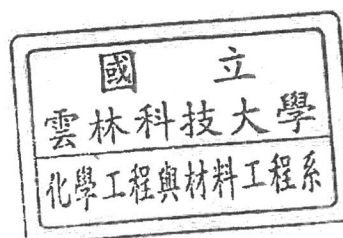 國立
雲林科技大學
化學工程與材料工程系